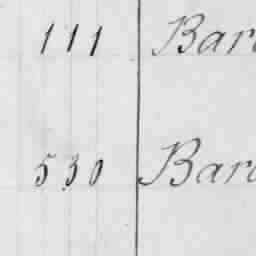 111 Bar
530 Bar